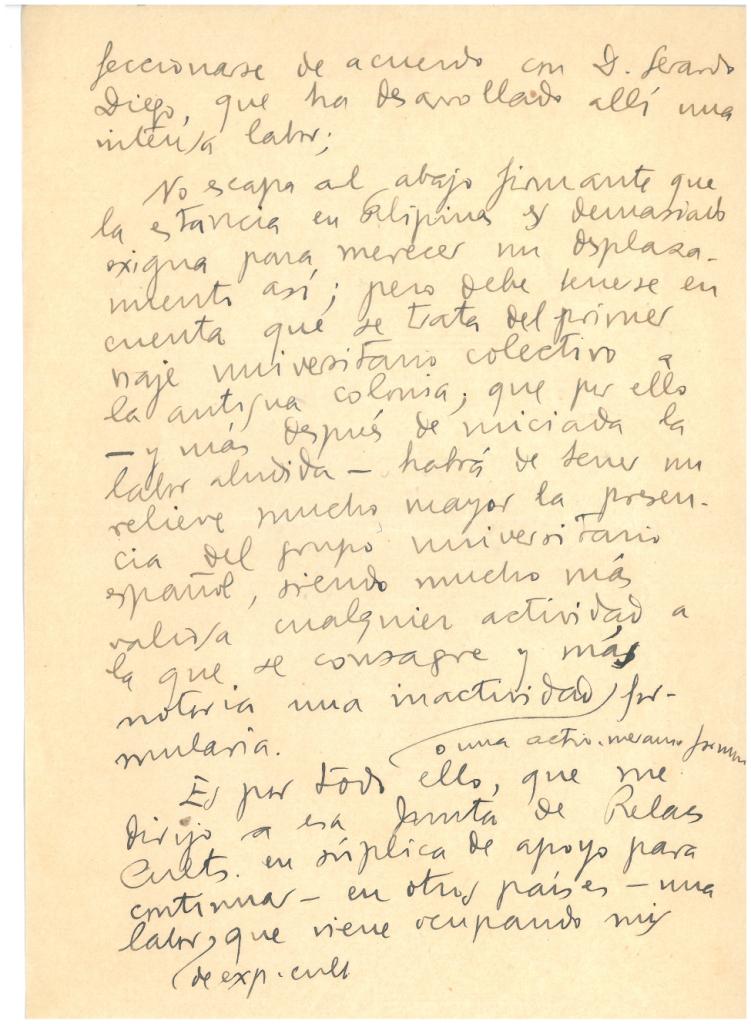 seccionarse de acuerdo con D. Gerardo
Diego, que ha desarrollado allí una
intensa labor;
No escapa al abajo firmante que
la estancia en Filipinas es demasiado
exigua para merecer un desplaza-
miento así; pero debe tenerse en
cuenta que se trata del primer
viaje universitario colectivo a
la antigua colonia; que por ello
— y más después de iniciada la
labor aludida — habrá de tener un
relieve mucho mayor la presen-
cia del grupo universitario
español, siendo mucho más
valiosa cualquier actividad a
la que se consagre y más
notoria una inactividad for-
mularia.
o una activ. meramte
Es por todo ello, que me
dirijo a esa Junta de Relacs
Cults. en súplica de apoyo para
continuar — en otros países — una
labor, que viene ocupando mis
de exp. cult